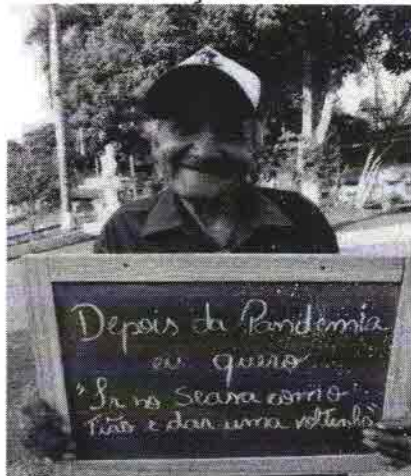 Depois da Pandemia
eu quero
"Ir no Seara como
Tiro e dar uma voltinha"